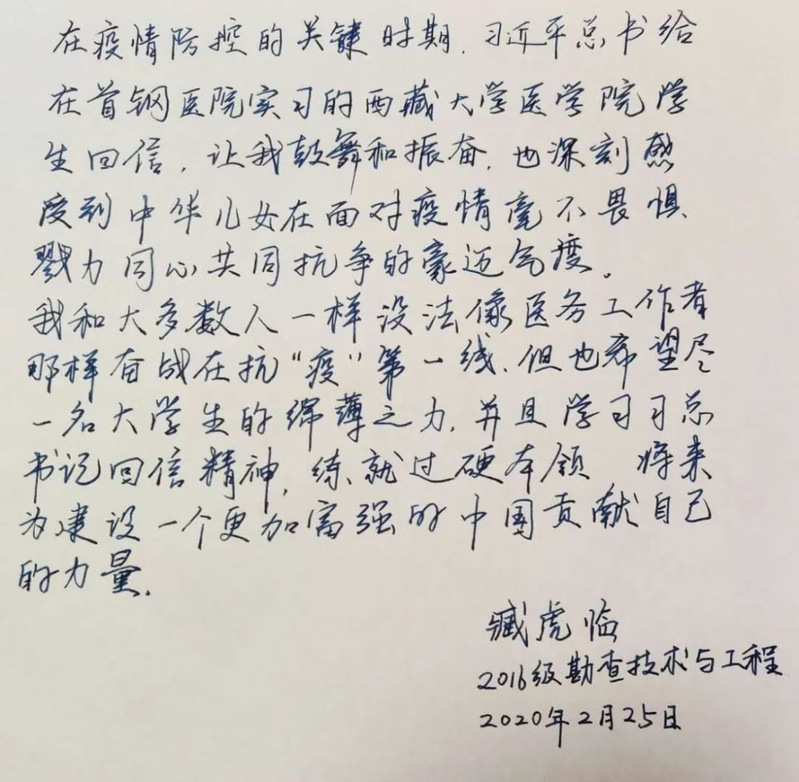 在疫情防控的关键时期，习近平总书给
在首钢医院实习的西藏大学医学院学
生回信，让我鼓舞和振奋，也深刻感
受到中华儿女在面对疫情毫不畏惧
戮力同心共同抗争的豪迈气度。
我和大多数人一样没法像医务工作者
那样奋战在抗“疫”第一线，但也希望尽
一名大学生的绵薄之力，并且学习习总
书记回信精神，练就过硬本领 将来
为建设一个更加富强的中国贡献自己
的力量。
臧虎临
2016级勘查技术与工程
2020年2月25日